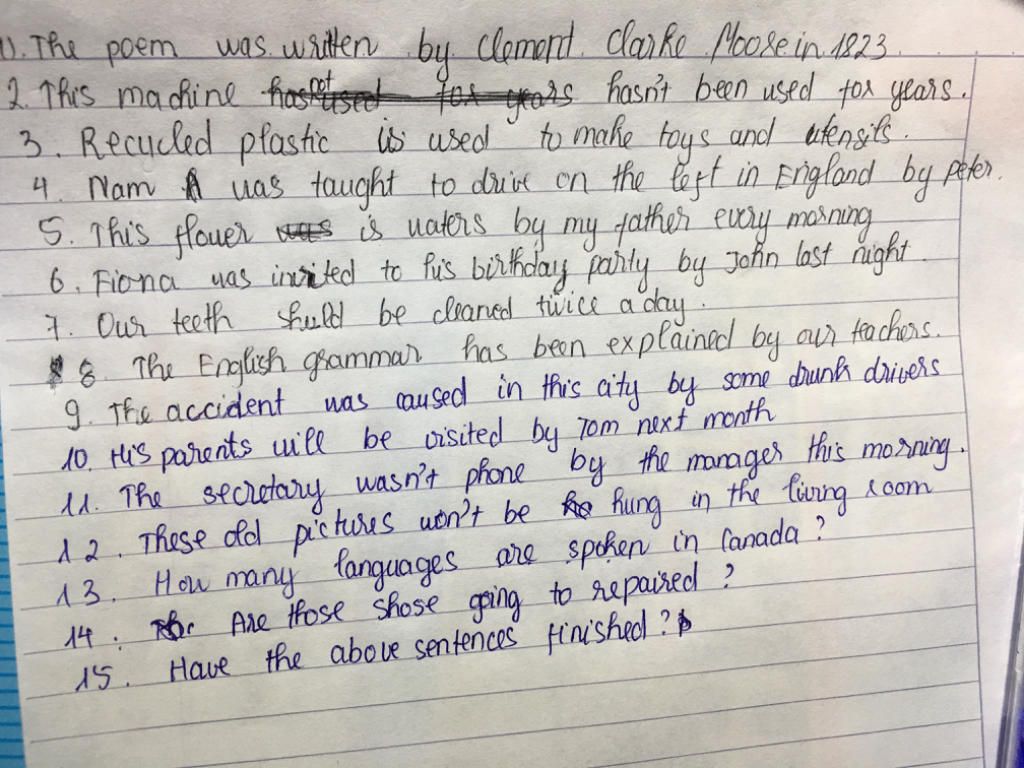 1). The poem was written by Clement Clarke Moore in 1823.
2. This machine has not used for years hasn't been used for years.
3. Recycled plastic is used to make toys and utensils.
4. Nam was taught to drive on the left in England by Peter.
5. This flower was is waters by my father every morning
6. Fiona was invited to his birthday party by John last night.
7. Our teeth should be cleaned twice a day.
8. The English grammar has been explained by our teachers.
9. The accident was caused in this city by some drunk drivers
10. His parents will be visited by Tom next month
11. The secretary wasn't phone by the manager this morning.
12. These old pictures won't be hung in the living room
13. How many languages are spoken in Canada?
14. Are those shose going to repaired?
15. Have the above sentences finished?